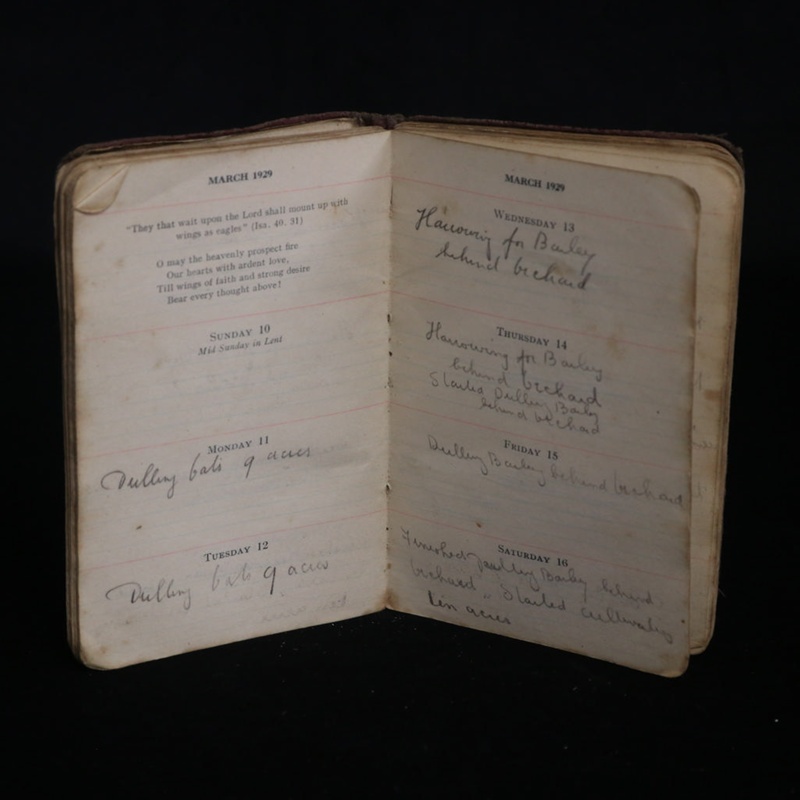 MARCH 1929
"They that wait upon the Lord shall mount up with
wings as eagles" (Isa. 40. 31)
O may the heavenly prospect fire
Our hearts with ardent love,
Till wings of faith and strong desire
Bear every thought above!
SUNDAY 10
Mid-Sunday in Lent
MONDAY 11
Drilling oats 9 acres
TUESDAY 12
Drilling oats 9 acres
MARCH 1929
WEDNESDAY 13
Harrowing for Barley
behind orchard
THURSDAY 14
Harrowing for Barley
behind orchard
Started Drilling Barley
behind orchard
FRIDAY 15
Drilling Barley behind orchard
SATURDAY 16
Finished drilling Barley behind
orchard, Started cultivating
ten acres